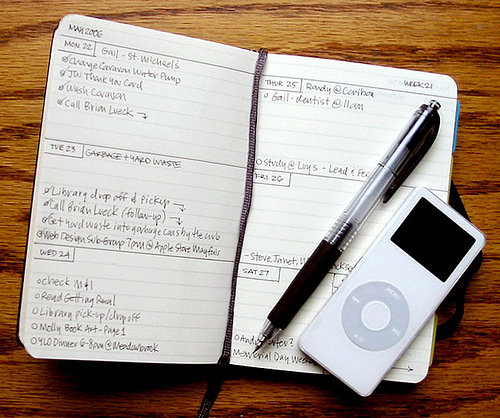 MAY 2006
MON 22 Gail - St. Michael's
Change Caravan Water Pump
JW Thank You Card
Wash Caravan
Call Brian Lueck
TUE 23 GARBAGE + YARD WASTE
Library drop off & pickup
Call Brian Lueck (follow-up)
Get yard waste into garbage cans by the curb
Web Design Sub-Group 7pm @ Apple Store Mayfair
WED 24
check M&I
Read Getting Real
Library pick-up/drop off
Molly Book Art - Page 1
YLO Dinner 6-8pm @ Meadowbrook
THUR 25 Randy @ Caribou WEEK 21
Gail - dentist @ 11am
Study @ Loy's - Lead &
FRI 26
- Steve, Janet,
SAT 27
Memorial Day
MENU